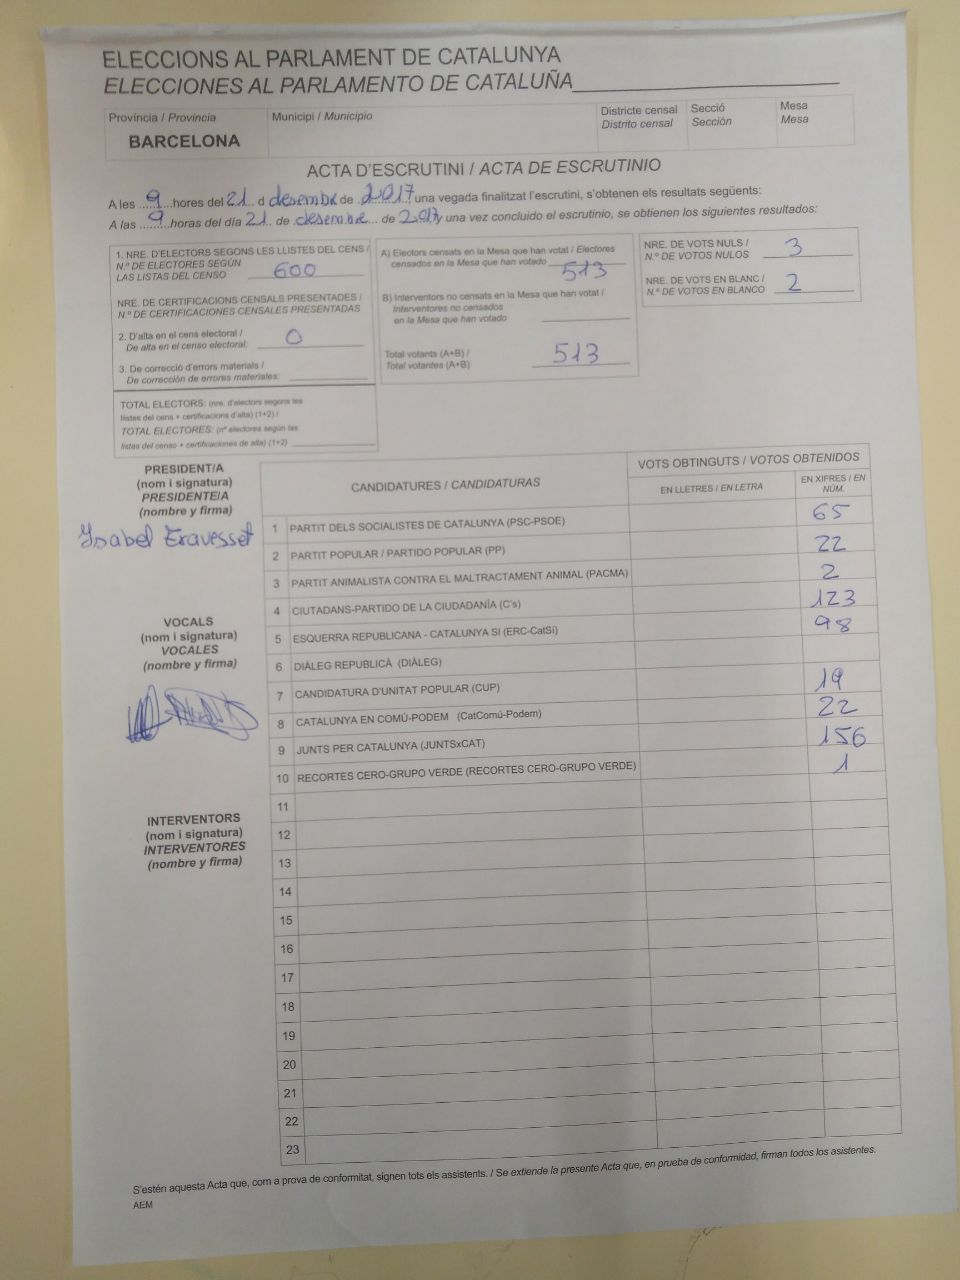 ELECCIONS AL PARLAMENT DE CATALUNYA
ELECCIONES AL PARLAMENTO DE CATALUÑA
Província / Provincia
BARCELONA
Municipi / Municipio
Districte censal
Distrito censal
Secció
Sección
Mesa
Mesa
ACTA D'ESCRUTINI / ACTA DE ESCRUTINIO
A les 9 hores del 21 d desembre de 2017 una vegada finalitzat l'escrutini, s'obtenen els resultats següents:
A las 9 horas del día 21 de desembre de 2017 y una vez concluido el escrutinio, se obtienen los siguientes resultados:
1. NRE. D'ELECTORS SEGONS LES LLISTES DEL CENS /
N.º DE ELECTORES SEGÚN
LAS LISTAS DEL CENSO 600
NRE. DE CERTIFICACIONS CENSALS PRESENTADES /
N.º DE CERTIFICACIONES CENSALES PRESENTADAS
2. D'alta en el cens electoral /
De alta en el censo electoral: 0
3. De correcció d'errors materials /
De corrección de errores materiales:
TOTAL ELECTORS: (nre. d'electors segons les
llistes del cens + certificacions d'alta) (1+2) /
TOTAL ELECTORES: (nº electores según las
listas del censo + certificaciones de alta) (1+2)
A) Electors censats en la Mesa que han votat / Electores
censados en la Mesa que han votado 513
B) Interventors no censats en la Mesa que han votat /
Interventores no censados
en la Mesa que han votado
Total votants (A+B) /
Total votantes (A+B) 513
NRE. DE VOTS NULS /
N.º DE VOTOS NULOS 3
NRE. DE VOTS EN BLANC /
N.º DE VOTOS EN BLANCO 2
PRESIDENT/A
(nom i signatura)
PRESIDENTE/A
(nombre y firma)
Ysabel Eravesset
VOCALS
(nom i signatura)
VOCALES
(nombre y firma)
INTERVENTORS
(nom i signatura)
INTERVENTORES
(nombre y firma)
CANDIDATURES / CANDIDATURAS
VOTS OBTINGUTS / VOTOS OBTENIDOS
EN LLETRES / EN LETRA
EN XIFRES / EN NÚM.
1 PARTIT DELS SOCIALISTES DE CATALUNYA (PSC-PSOE) 65
2 PARTIT POPULAR / PARTIDO POPULAR (PP) 22
3 PARTIT ANIMALISTA CONTRA EL MALTRACTAMENT ANIMAL (PACMA) 2
4 CIUTADANS-PARTIDO DE LA CIUDADANÍA (C's) 123
5 ESQUERRA REPUBLICANA - CATALUNYA SI (ERC-CatSí) 98
6 DIÀLEG REPUBLICÀ (DIÀLEG)
7 CANDIDATURA D'UNITAT POPULAR (CUP) 19
8 CATALUNYA EN COMÚ-PODEM (CatComú-Podem) 22
9 JUNTS PER CATALUNYA (JUNTSxCAT) 156
10 RECORTES CERO-GRUPO VERDE (RECORTES CERO-GRUPO VERDE) 1
11
12
13
14
15
16
17
18
19
20
21
22
23
S'estén aquesta Acta que, com a prova de conformitat, signen tots els assistents. / Se extiende la presente Acta que, en prueba de conformidad, firman todos los asistentes.
AEM